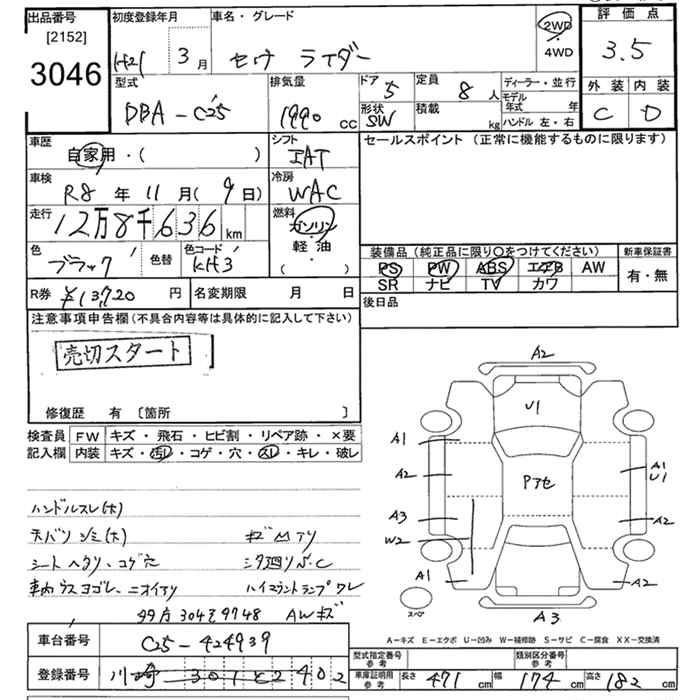 出品番号
[2152]
3046
初度登録年月
H21 3月
車名・グレード
セレナ ライダー
2WD
4WD
評価点
3.5
外装 内装
C D
型式
DBA-C25
排気量
1990 cc
ドア
5
定員
8 人
形状
SW
積載
kg
ディーラー・並行
モデル年式 年
ハンドル 左・右
車歴
自家用・( )
シフト
IAT
車検
R8年 11月(9日)
冷房
WAC
走行
12万8千636 km
燃料
ガソリン
軽油
( ・ )
色
ブラック
色替
色コード
KH3
R券 ¥13,720 円
名変期限 月 日
セールスポイント (正常に機能するものに限ります)
装備品 (純正品に限り○をつけてください)
PS PW ABS エアB AW
SR ナビ TV カワ
新車保証書
有・無
後日品
注意事項申告欄(不具合内容等は具体的に記入して下さい)
売切スタート
修復歴 有 〔箇所 〕
検査員 FW キズ・飛石・ヒビ割・リペア跡・×要
記入欄 内装 キズ・汚レ・コゲ・穴・スレ・キレ・破レ
ハンドルスレ(大)
天バリ シミ(大) キズ凹アリ
シート ヘタリ、コゲ穴 シタ廻りS.C
車内ウスヨゴレ、ニオイアリ ハイマウントランプワレ
99万 304を9748 AWキズ
車台番号 C25-424939
登録番号 川崎 301 ‥ 402
A2
U1
A1
A2
Pアセ
A1
U1
A3
W2
A2
A1
A2
A3
スペア
A-キズ E-エクボ U-凹み W-補修跡 S-サビ C-腐食 XX-交換済
型式指定番号
参考
類別区分番号
参考
車庫証明用
参考
長さ 471 cm 幅 174 cm 高さ 182 cm